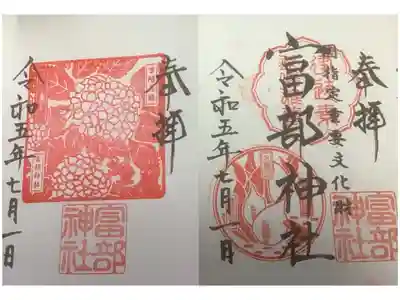 奉拝
令和五年七月一日
富部神社
奉拝
国指定重要文化財
富部神社
令和五年七月一日
富部神社